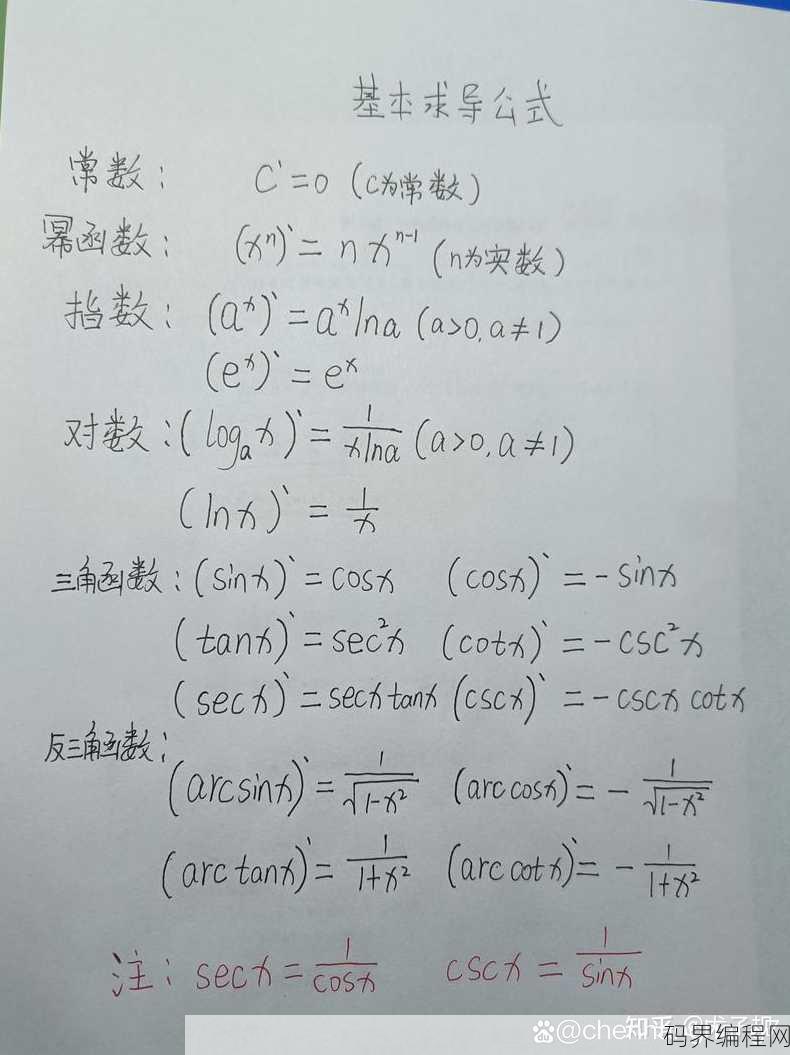 基本求导公式
常数: C`=0 (C为常数)
幂函数: (xⁿ)`= n xⁿ⁻¹ (n为实数)
指数: (aˣ)`=aˣlna (a>0,a≠1)
(eˣ)`= eˣ
对数:(logₐx)`= 1/(xlna) (a>0,a≠1)
(lnx)`= 1/x
三角函数:(sinx)`=cosx (cosx)`=-sinx
(tanx)`=sec²x (cotx)`=-csc²x
(secx)`=secxtanx (cscx)`=-cscxcotx
反三角函数:
(arcsinx)`= 1/√(1-x²) (arccosx)`= - 1/√(1-x²)
(arctanx)`= 1/(1+x²) (arccotx)`= - 1/(1+x²)
注: secx= 1/cosx cscx = 1/sinx
知乎
码界编程网